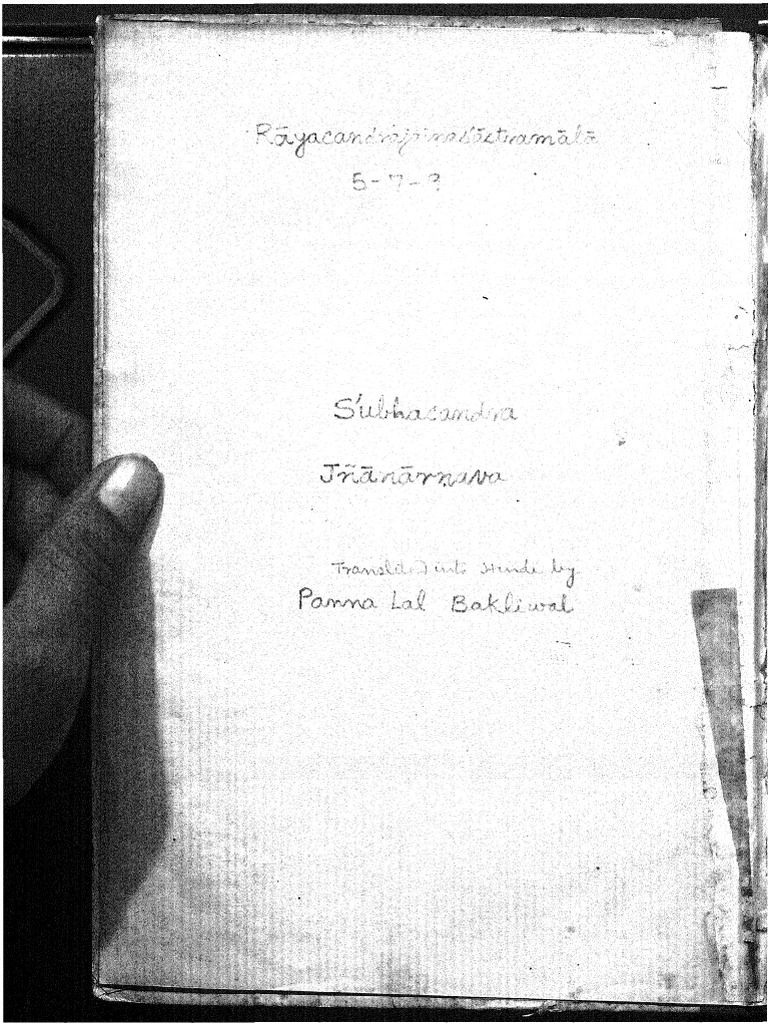 Rāyacandrajainaśāstramālā
5-7-9
Śubhacandra
Jñānārṇava
Translated into Hindi by
Panna Lal Bakliwal